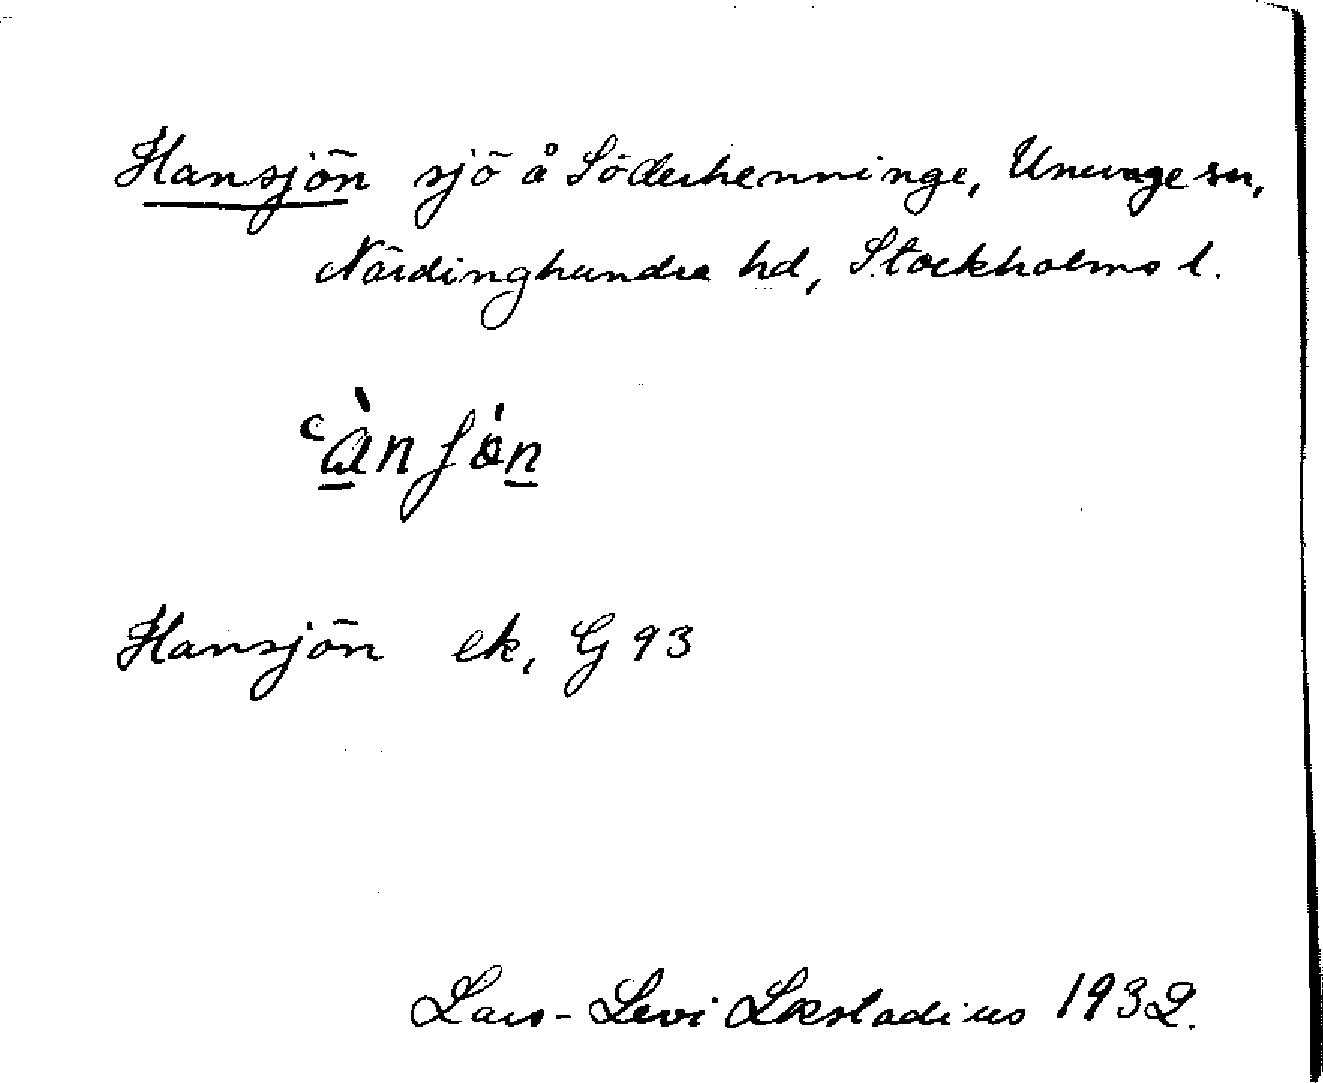 Hansjön sjö å Söderhenninge, Ununge sn,
Närdinghundra hd, Stockholms l.
Hansjön ek, G 93
Lars-Levi Læstadius 1932.